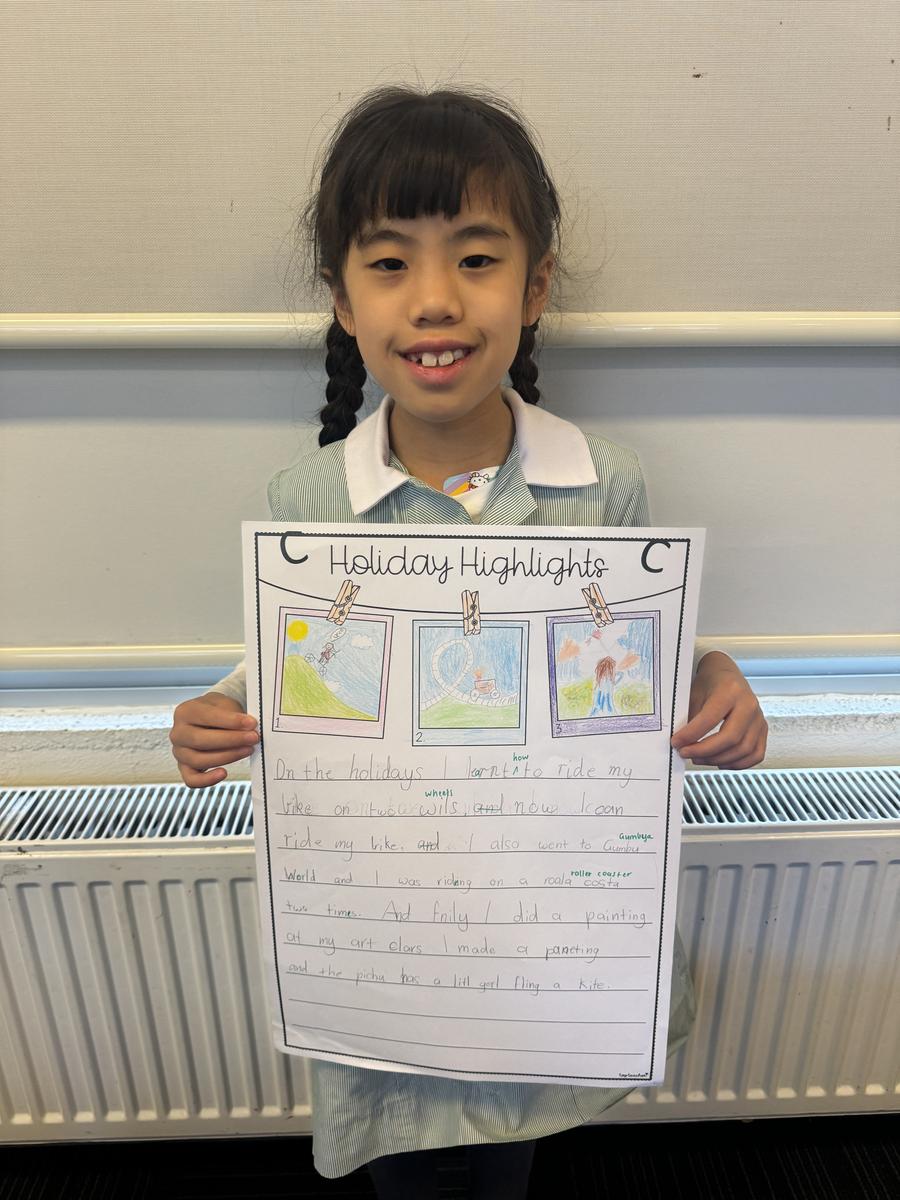 C Holiday Highlights C
1.
2.
3.
how
On the holidays I learnt to ride my
wheels
bike on two wils, and now I can
ride my bike. and I also went to Gumbu
Gumbuya
World and I was riding on a roala costa
roller coaster
two times. And fnily I did a painting
at my art clars I made a paneting
and the pichu has a litl gerl fling a kite.